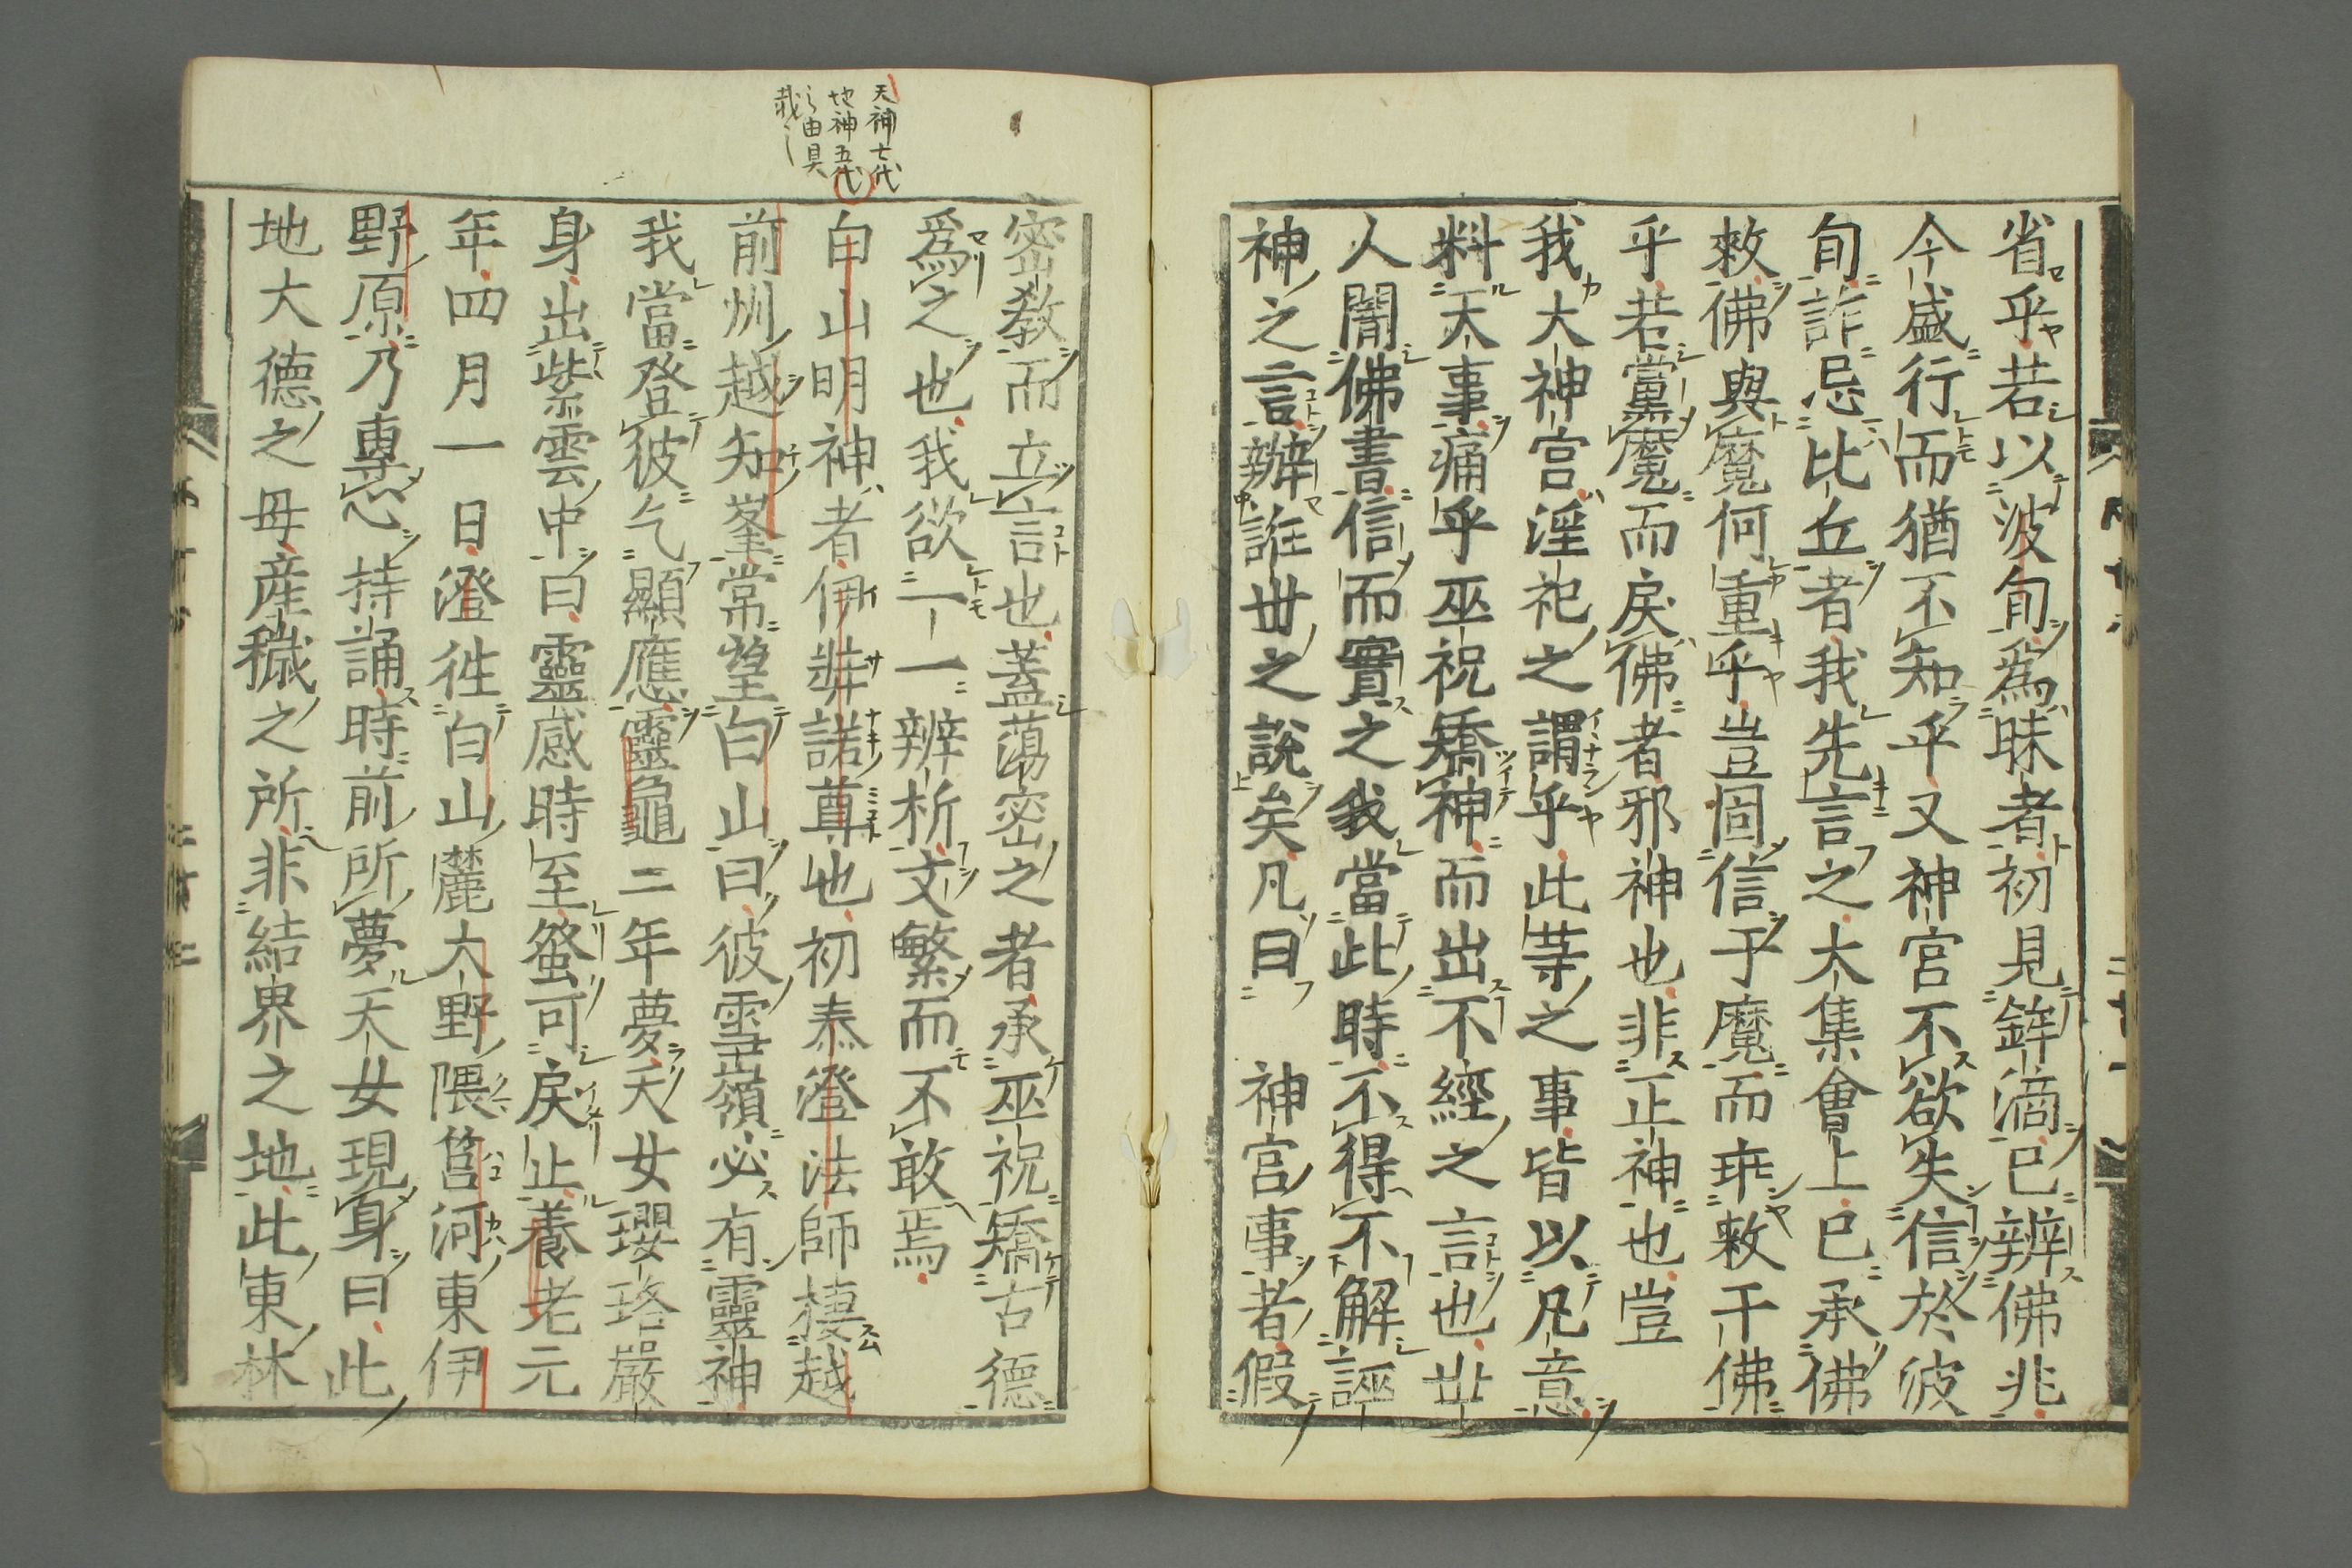 省乎若以波旬爲昧者初見鉾滴已辨佛兆
今盛行而猶不知乎又神宮不欲失信於波
旬詐忌比丘者我先言之大集會上已承佛
敕佛與魔何重乎豈固信于魔而乖敕干佛
乎若黨魔而戾佛者邪神也非正神也豈
我大神宮淫祀之謂乎此等之事皆以凡意
料天事痛乎巫祝矯神而出不經之言也世
人闇佛書信而實之我當此時不得不解誣
神之言辨誑世之說矣凡曰 神宮事者假
密教而立言也蓋蕩密之者承巫祝矯古德
爲之也我欲一一辨析文繁而不敢焉
天神七代
地神五代
之由具
載之
白山明神者伊弉諾尊也初泰澄法師棲越
前州越知峯常望白山曰彼雪嶺必有靈神
我當登彼乞顯應靈龜二年夢天女瓔珞嚴
身出紫雲中曰靈感時至蚤可戾止養老元
年四月一日澄徃白山麓大野隈筥河東伊
野原乃專心持誦時前所夢天女現身曰此
地大德之母産穢之所非結界之地此東林